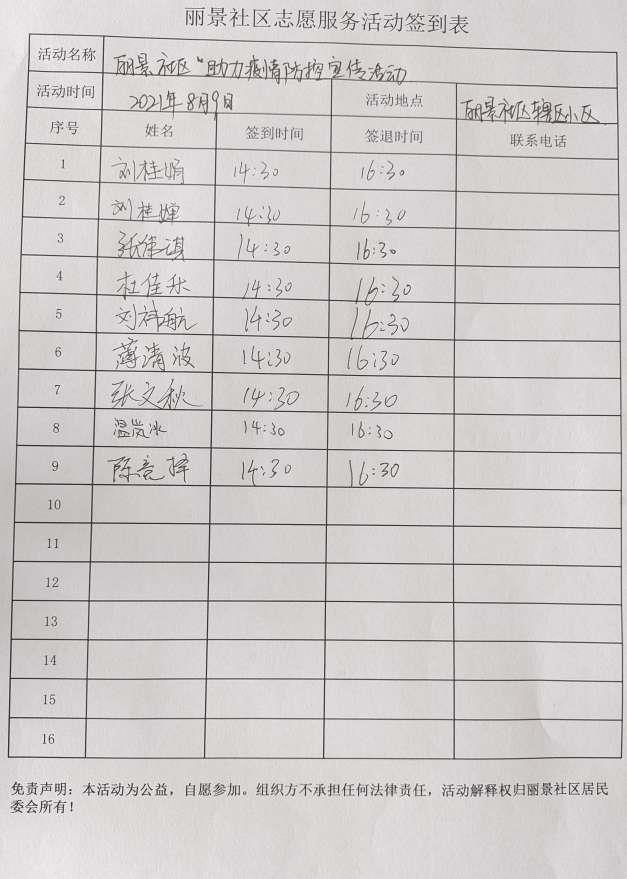 丽景社区志愿服务活动签到表
活动名称 丽景社区“助力疫情防控宣传活动
活动时间 2021年8月9日 活动地点 丽景社区辖区小区
序号 姓名 签到时间 签退时间 联系电话
1 刘桂娟 14:30 16:30
2 刘桂婵 14:30 16:30
3 张律淇 14:30 16:30
4 杜佳乐 14:30 16:30
5 刘祎航 14:30 16:30
6 薄清波 14:30 16:30
7 张文秋 14:30 16:30
8 温岚冰 14:30 16:30
9 陈竞择 14:30 16:30
10
11
12
13
14
15
16
免责声明：本活动为公益，自愿参加。组织方不承担任何法律责任，活动解释权归丽景社区居民
委会所有！